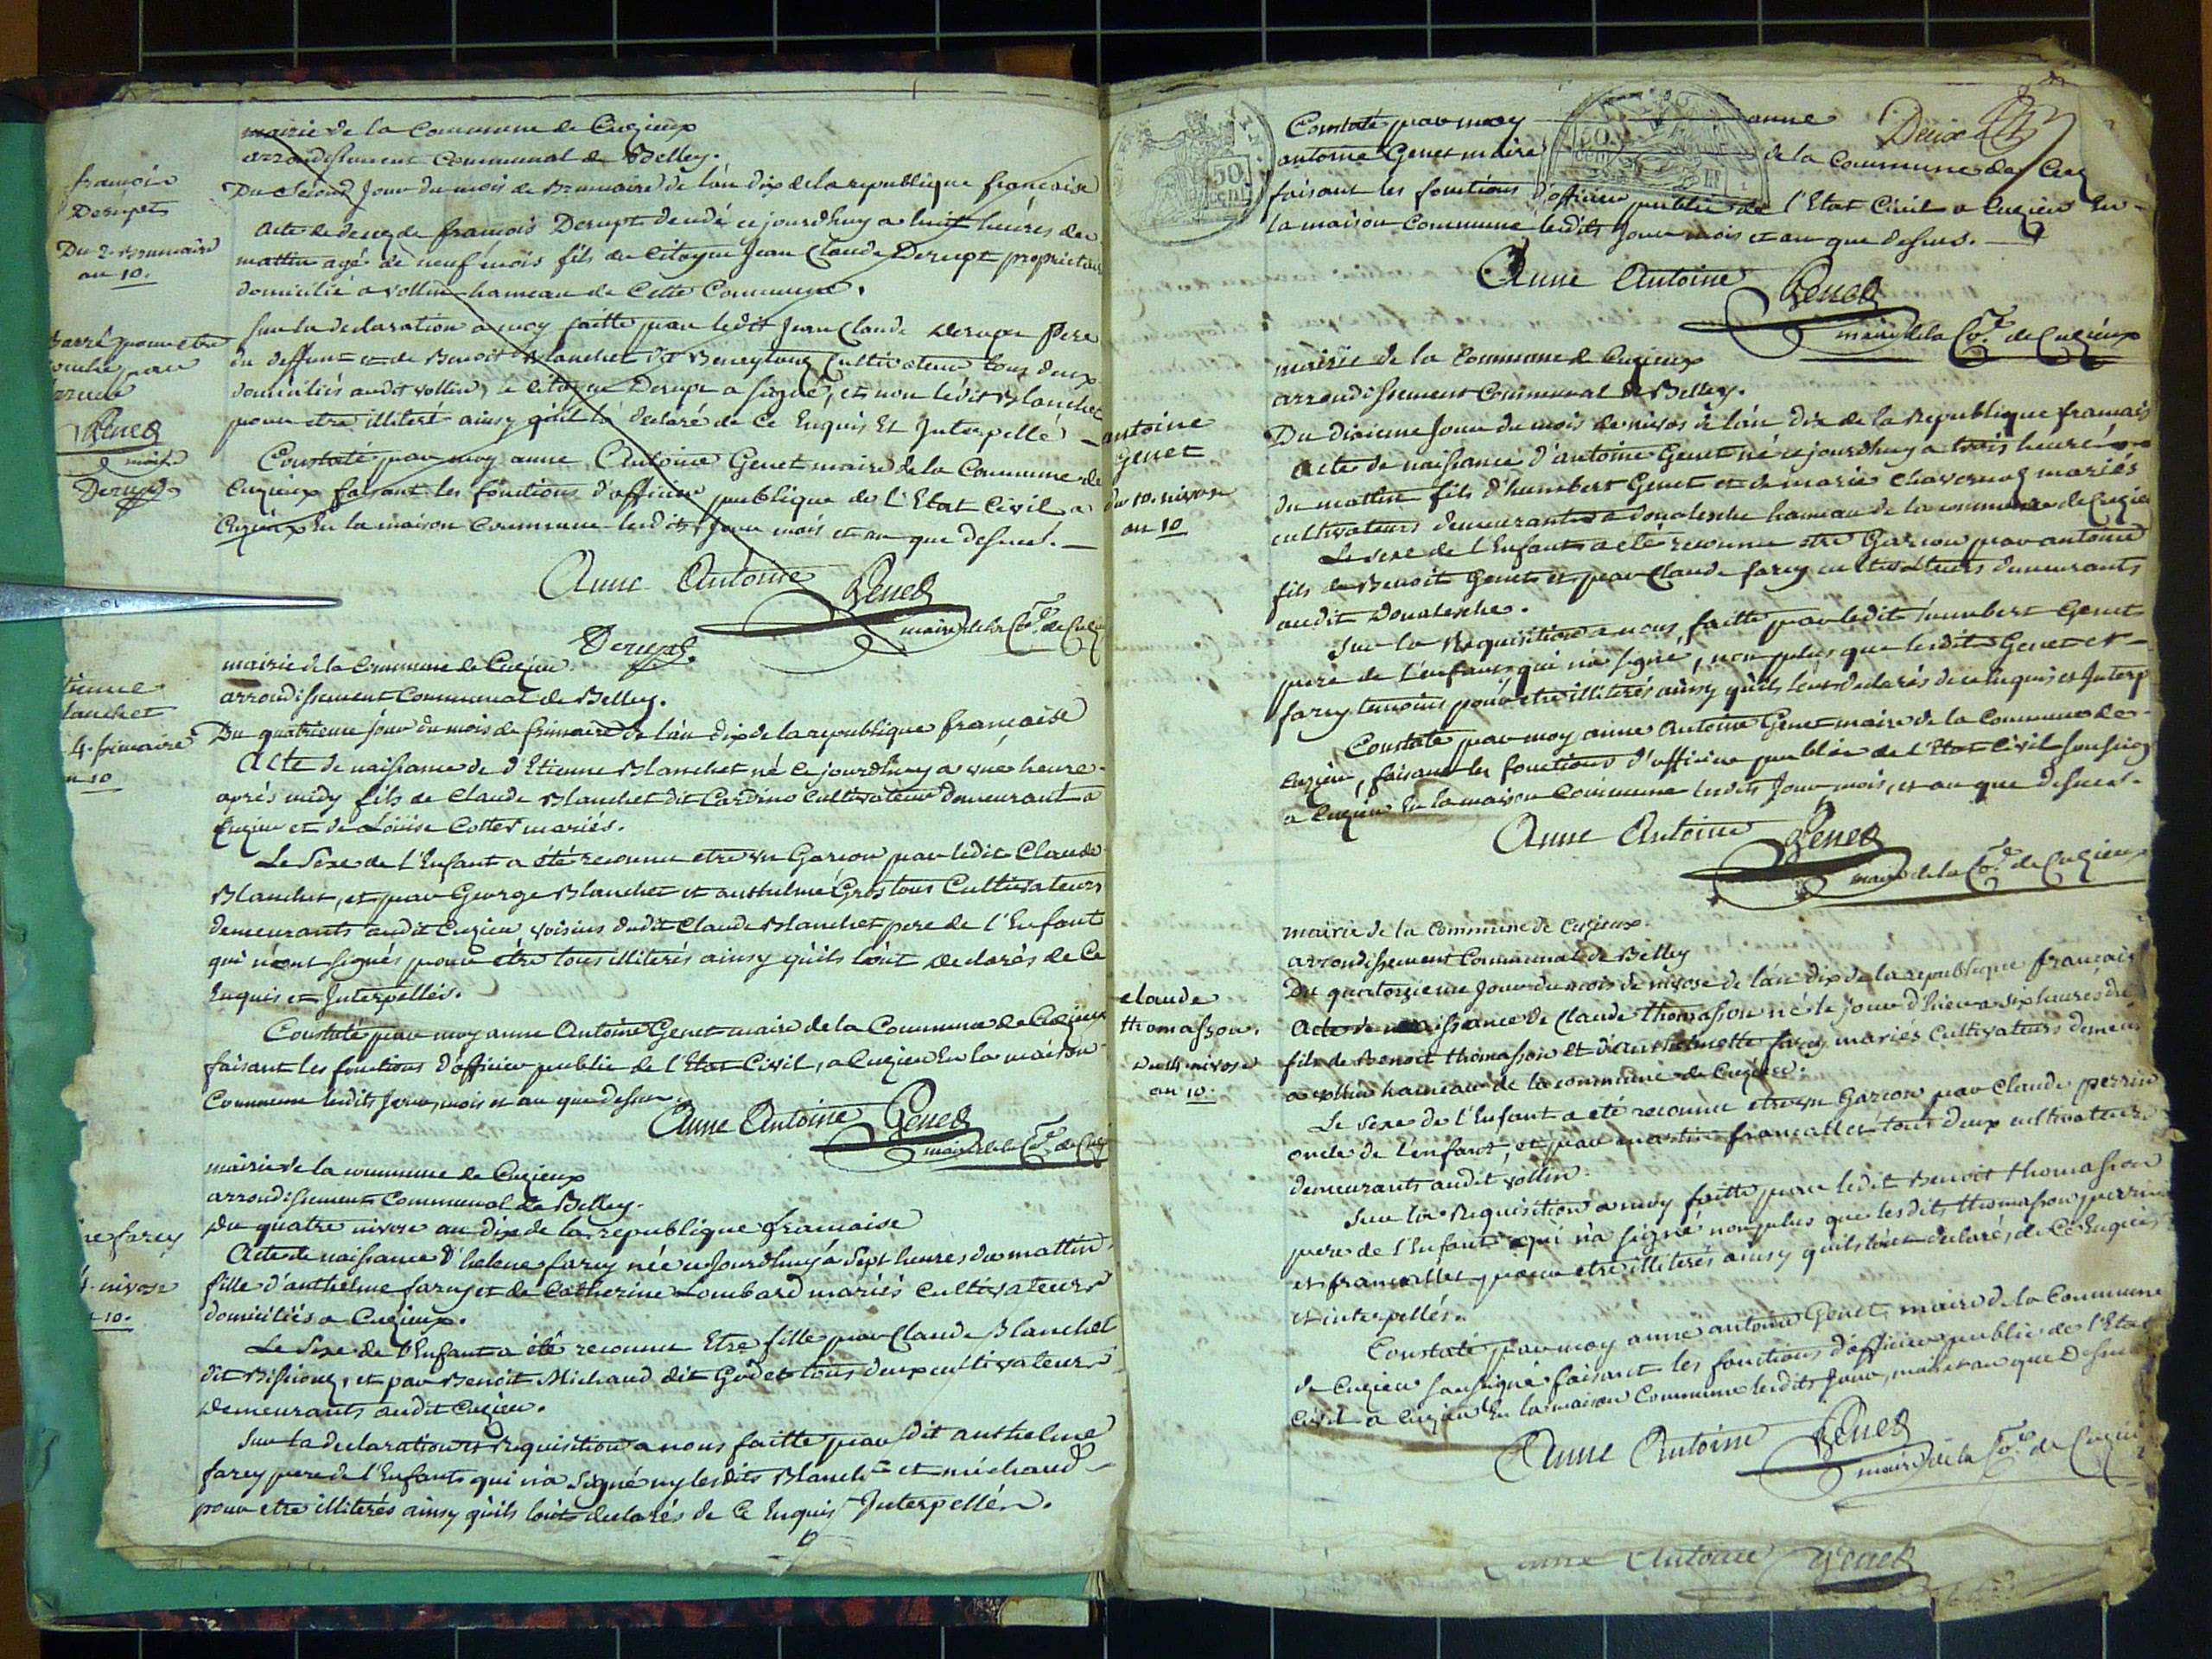 mairie de la Commune de Cuzieux
arrondissement Communal de Belley.
francois
Derupt
Du 2. Brumaire
an 10.
Du second Jour du mois de Brumaire de l'an dix de la republique francaise
acte de decez de francois Derupt decedé cejourdhuy a huit heures du
mattin agé de neuf mois fils du Citoyen Jean Claude Derupt proprietaire
domicilié a vollin hameau de Cette Commune.
barré pour etre
par
erreur
Genet
maire
Derupt
sur la declaration a moy faitte par ledit Jean Claude Derupt Pere
du deffunt et de Benoit Blanchet dit Cultivateur tous deux
domiciliés audit vollin, le Citoyen Derupt a signé, et non ledit Blanchet
pour etre illiteré ainsy qu'il l'a declaré de Ce Enquis Et Interpellé
Constaté par moy anne Antoine Genet maire de la Commune de
Cuzieux faisant les fonctions d'officier publique de l'Etat Civil a
Cuzieux En la maison Commune lesdits Jour mois et an que dessus.
Anne Antoine Genet
maire de la Co.ne de Cuz
Derupt.
mairie de la Commune de Cuzieu
arrondissement Communal de Belley.
tienne
lanchet
4. frimaire
n 10
Du quatrieme jour du mois de frimaire de l'an dix de la republique francaise
Acte de naissance de d'Etienne Blanchet né Cejourdhuy a une heure
après midy fils de Claude Blanchet dit Cardino Cultivateur demeurant a
Cuzieu et de Loüise Cottet mariés.
Le Sexe de l'Enfant a été reconnu etre un Garcon par ledit Claude
Blanchet, et par George Blanchet et anthelme Gros tous Cultivateurs
demeurants audit Cuzieu voisins dudit Claude Blanchet pere de l'Enfant
qui n'ont signés pour être tous illiterés ainsy qu'ils l'ont declarés de Ce
Enquis et Interpellés.
Constaté par moy anne Antoine Genet maire de la Commune de Cuzieux
faisant les fonctions d'officier public de l'Etat Civil, a Cuzieu En la maison
Commune lesdits Jour, mois et an que dessus.
Anne Antoine Genet
maire de la Co.ne de Cuz
mairie de la commune de Cuzieux
arrondissement Communal de Belley.
ne farcy
4. nivose
10.
Du quatre nivose an dix de la republique francaise
Acte de naissance d'helene farcy née cejourdhuy a Sept heures du mattin
fille d'anthelme farcy et de Catherine Lombard mariés Cultivateurs
domiciliés a Cuzieux.
Le Sexe de l'Enfant a été reconnu Etre fille par Claude Blanchet
dit et par Benoit Michaud dit Godet tous deux cultivateurs
demeurants audit Cuzieu.
Sur la declaration et requisition a nous faitte par dit anthelme
farcy pere de l'Enfant qui n'a signé ny lesdits Blanchet et michaud
pour etre illiterés ainsy qu'ils l'ont declarés de Ce Enquis Interpellés.
Deux
Constaté par moy anne
antoine Genet maire de la Commune de Cuz
faisant les fonctions d'officier public de l'Etat Civil a Cuzieu En
la maison Commune lesdits Jour mois et an que dessus.
50 cent
50 cent
Anne Antoine Genet
maire de la Co.ne de Cuzieux
mairie de la Commune de Cuzieux
arrondissement Communal de Belley.
antoine
genet
du 10. nivose
an 10
Du dixieme Jour du mois de nivos de l'an dix de la Republique francais
Acte de naissance d'antoine Genet né cejourdhuy a trois heures
du mattin fils d'humbert Genet et de marie mariés
cultivateurs demeurants a hameau de la commune de Cuzieu
Le sexe de l'Enfant a eté reconnu etre Garcon par antoine
fils de Benoit Genet et par Claude farcy cultivateurs demeurants
audit
Sur la Requisition a nous faitte par ledit humbert Genet
pere de l'enfant, qui n'a signé, non plus que lesdits Genet et
farcy temoins pour etre illiterés ainsy qu'ils l'ont declarés de ce enquis et Interp
Constaté par moy anne Antoine Genet maire de la Commune de
Cuzieu, faisant les fonctions d'officier public de l'Etat Civil soussigné
a Cuzieu En la maison Commune lesdits Jour, mois, et an que dessus.
Anne Antoine Genet
maire de la Co.ne de Cuzieux
mairie de la Commune de Cuzieux.
arrondissement Communal de Belley
claude
thomasson.
du 14 nivose
an 10.
Du quatorzieme Jour du mois de nivose de l'an dix de la republique francais
Acte de naissance de Claude thomasson né le jour d'hier a six heures du
fils de Benoit thomasson et d'anthelmette farcy mariés Cultivateurs demeur
a vollin hameau de la commune de Cuzieu.
Le sexe de l'Enfant a eté reconnu etre un Garcon par Claude perrin
oncle de l'enfant, et par francallet tous deux cultivateurs
demeurants audit vollin.
Sur la Requisition a moy faitte par ledit Benoit thomasson
pere de l'Enfant qui n'a signé non plus que lesdits thomasson perrin
et francallet pour etre illiterés ainsy qu'ils l'ont declarés de Ce Enquis
et interpellés.
Constaté par moy anne antoine Genet maire de la Commune
de Cuzieu soussigné faisant les fonctions d'officier public de l'Etat
Civil a Cuzieu En la maison Commune lesdits Jour, mois et an que dessus
Anne Antoine Genet
maire de la Co.ne de Cuzieu
anne Antoine Genet